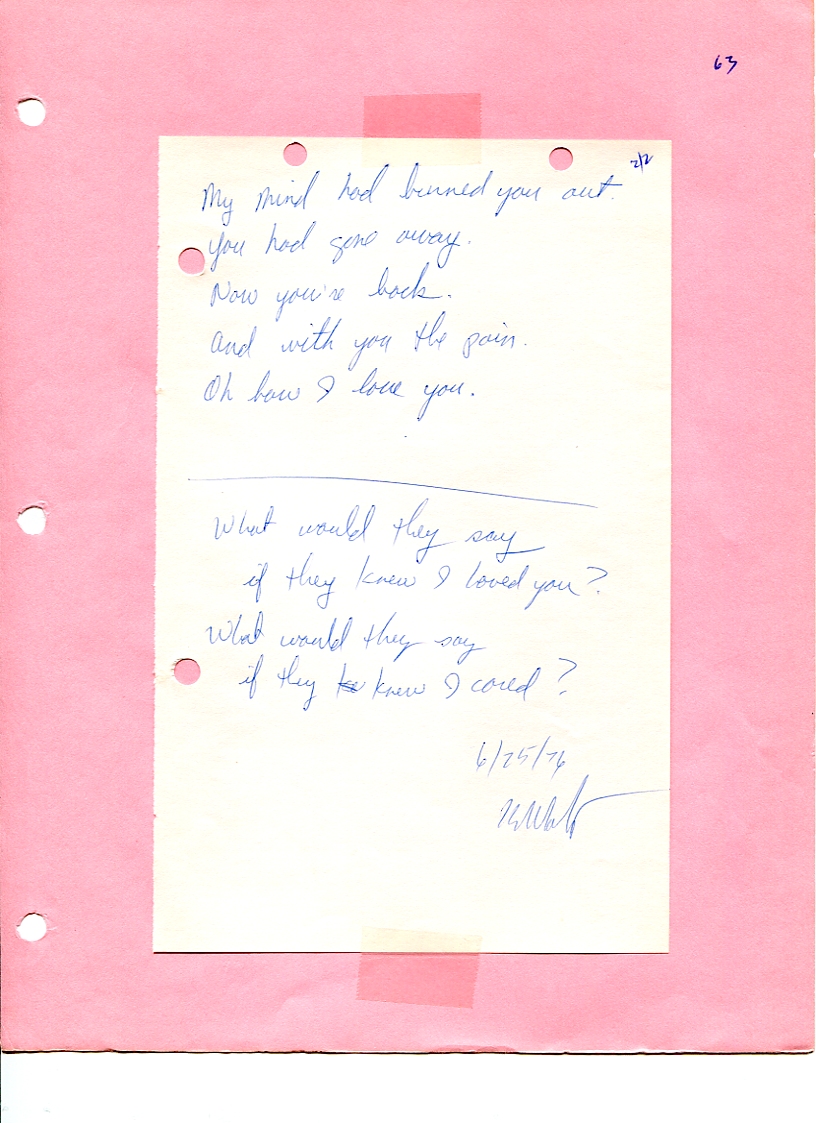 63
2/2
My mind had burned you out.
You had gone away.
Now you're back.
And with you the pain.
Oh how I love you.
What would they say
if they knew I loved you?
What would they say
if they knew I cared?
6/25/76